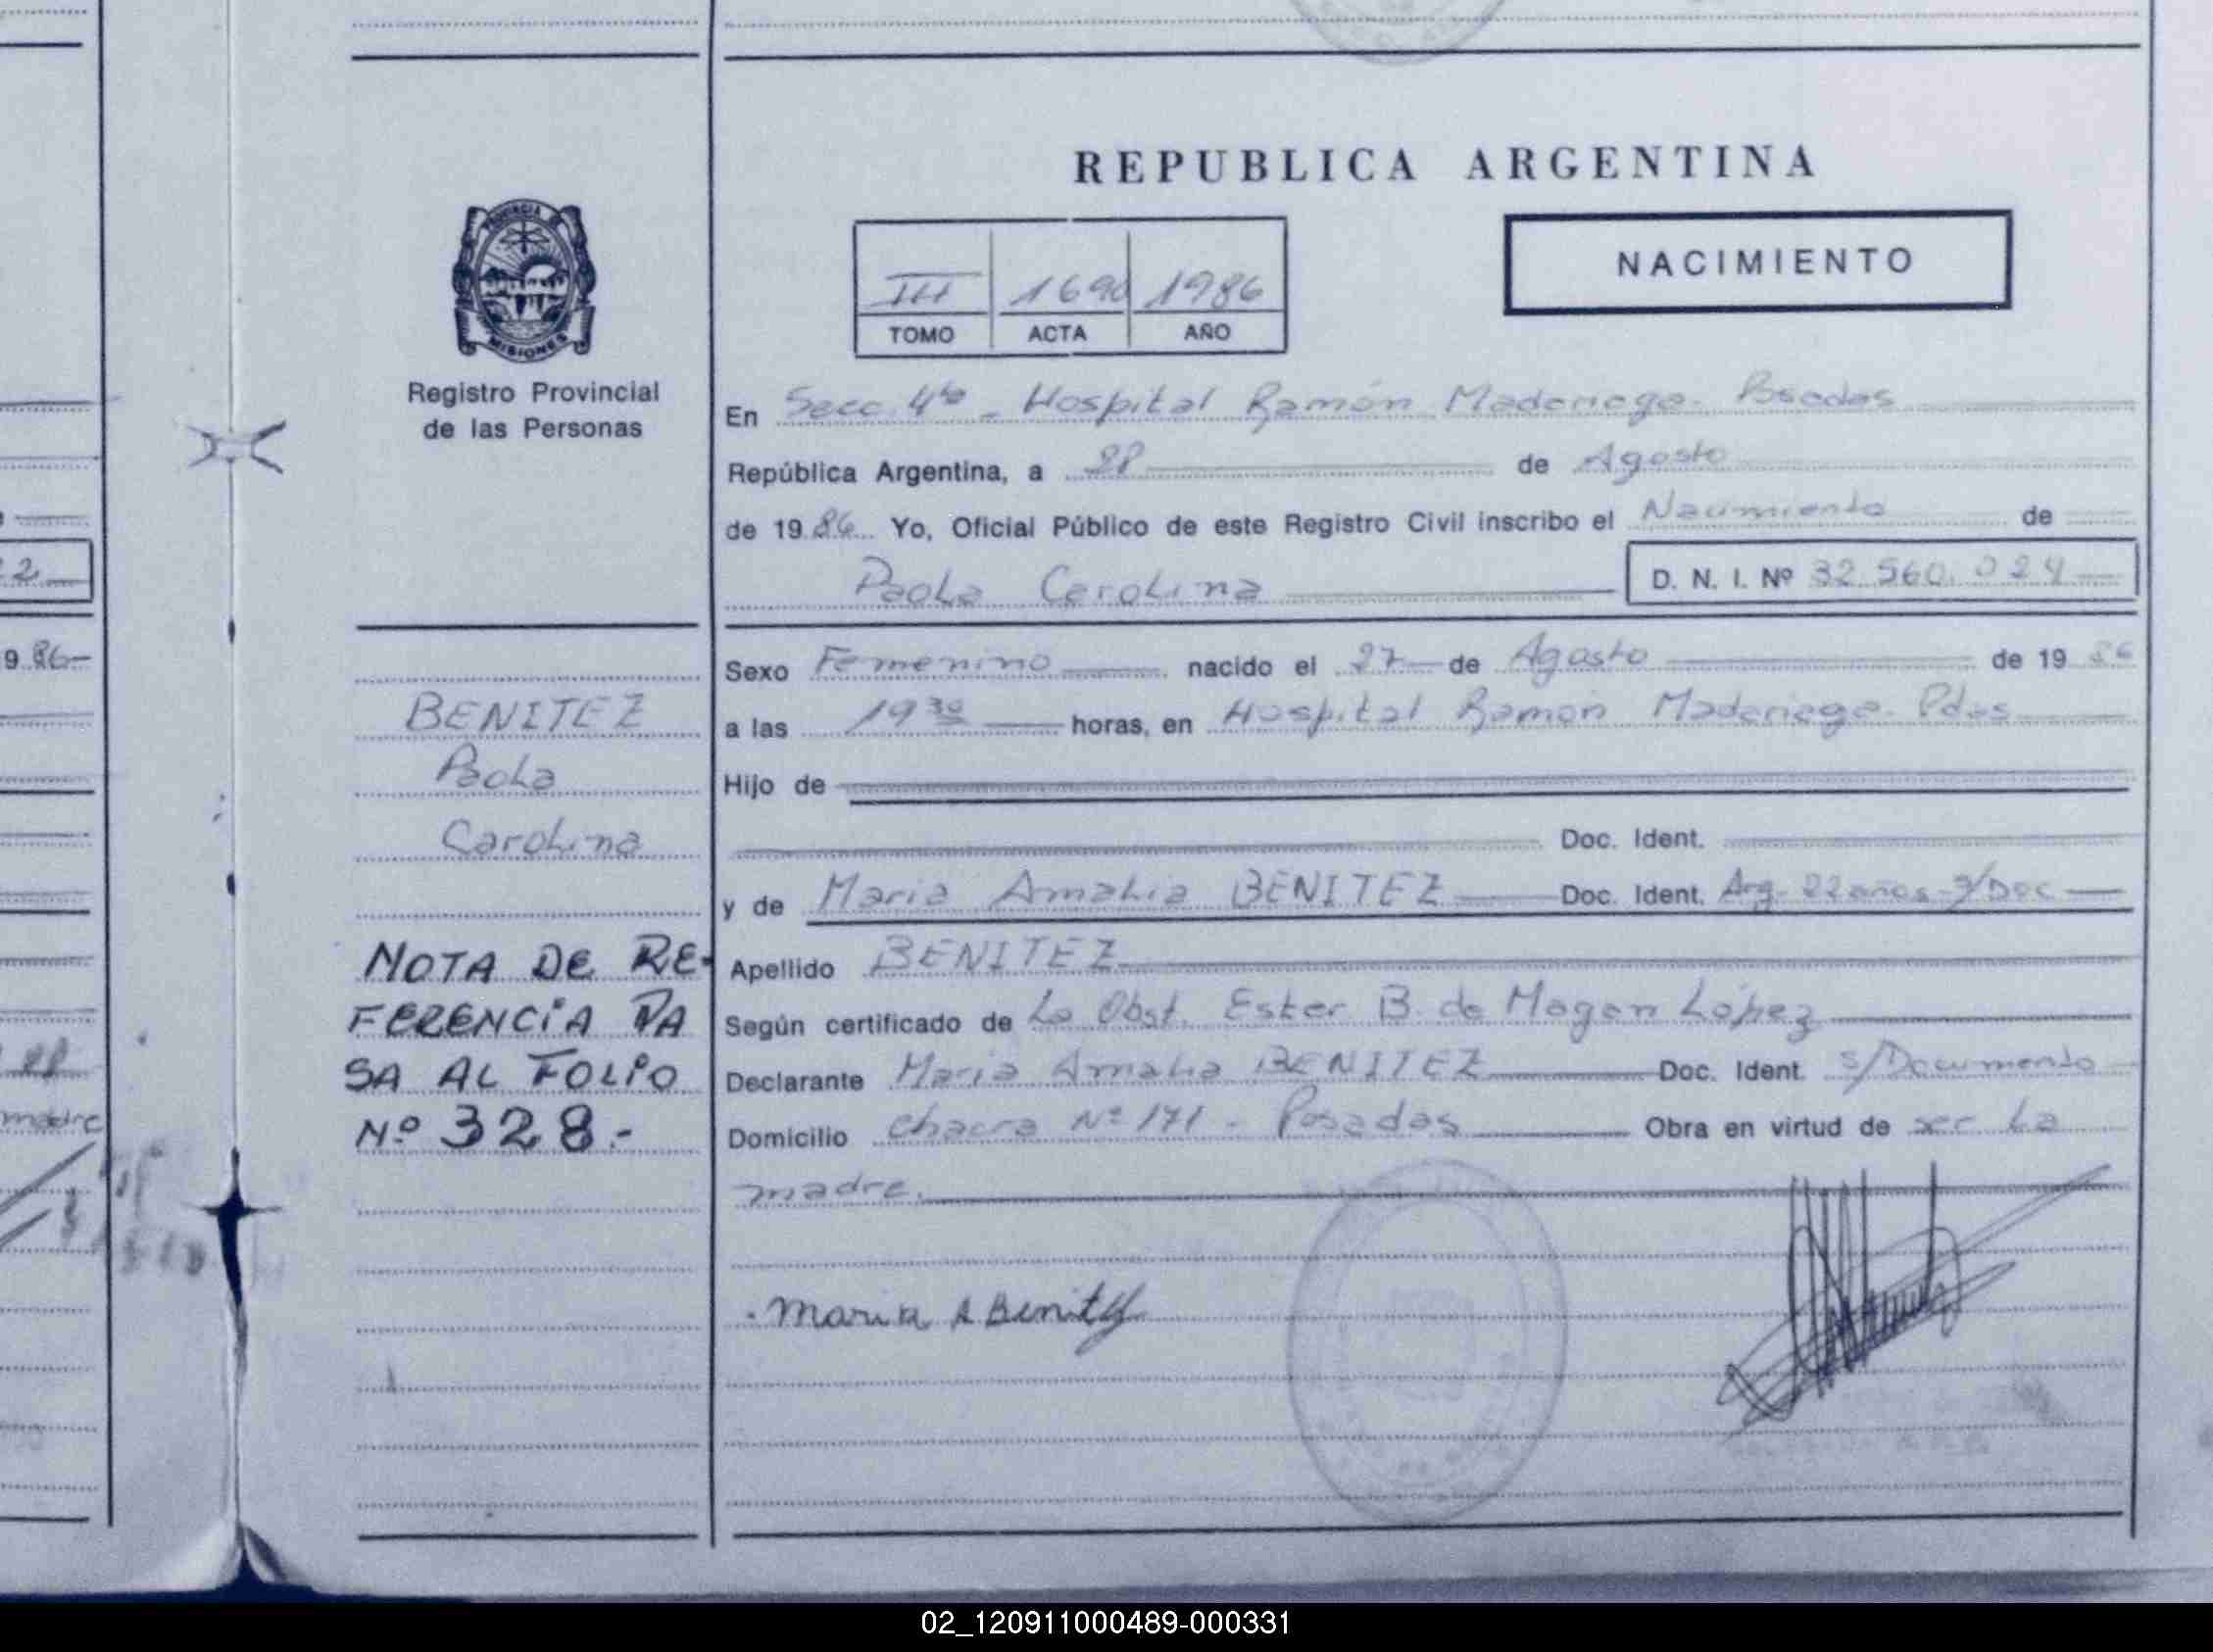 REPUBLICA ARGENTINA
NACIMIENTO
III 1690 1986
TOMO ACTA AÑO
PROVINCIA DE
MISIONES
Registro Provincial
de las Personas
En Secc. 4ta - Hospital Ramón Madariaga - Posadas
República Argentina, a 28 de Agosto
de 1986 Yo, Oficial Público de este Registro Civil inscribo el Nacimiento de
Paola Carolina D. N. I. Nº 32.560.024
Sexo Femenino nacido el 27 de Agosto de 1986
a las 19 30 horas, en Hospital Ramón Madariaga - Pdas
Hijo de
Doc. Ident.
y de Maria Amalia BENITEZ Doc. Ident. Arg. 22 años - s/Doc
Apellido BENITEZ
Según certificado de La Obst. Ester B. de López
Declarante Maria Amalia BENITEZ Doc. Ident. s/Documento
Domicilio chacra Nº 171 - Posadas Obra en virtud de ser la
madre.
Maria A Benitez
BENITEZ
Paola
Carolina
NOTA DE RE-
FERENCIA PA
SA AL FOLIO
Nº 328.-
2
9 86
28
madre
02_120911000489-000331